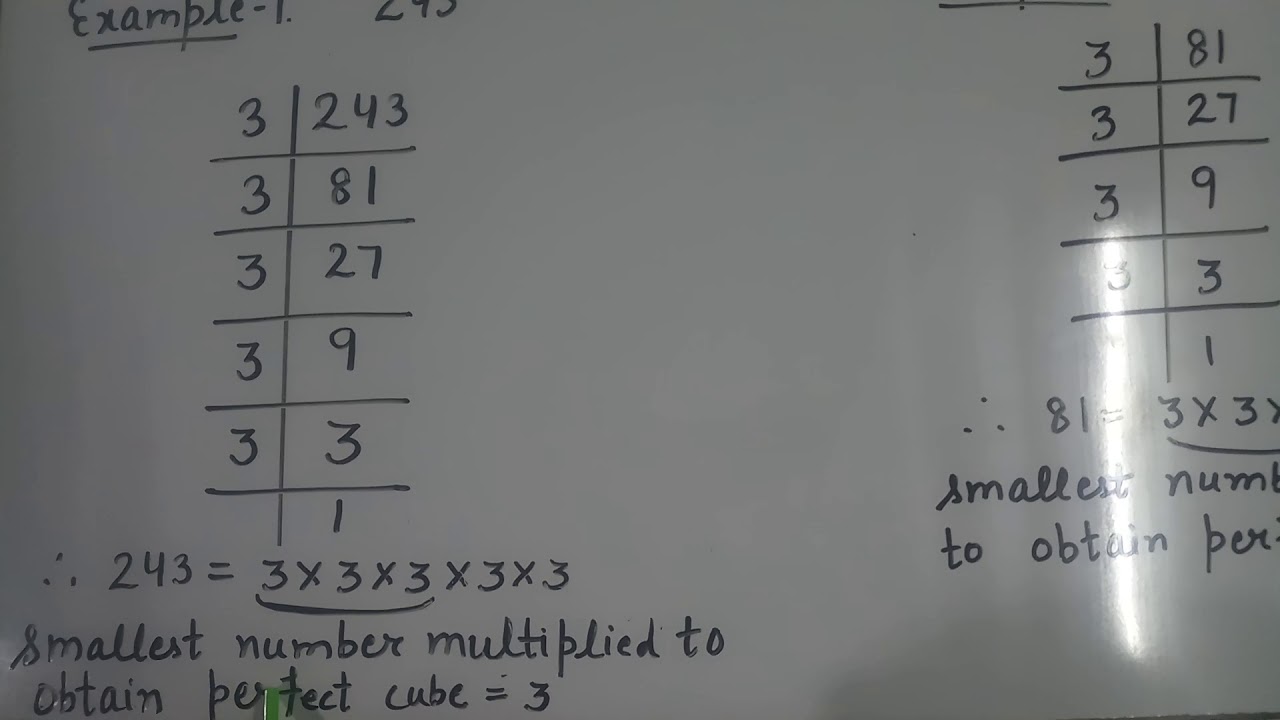 Example-1. 243
3 | 243
3 | 81
3 | 27
3 | 9
3 | 3
1
∴ 243 = 3 × 3 × 3 × 3 × 3
Smallest number multiplied to
obtain perfect cube = 3
3 | 81
3 | 27
3 | 9
3 | 3
1
∴ 81 = 3 × 3 ×
smallest numb
to obtain per